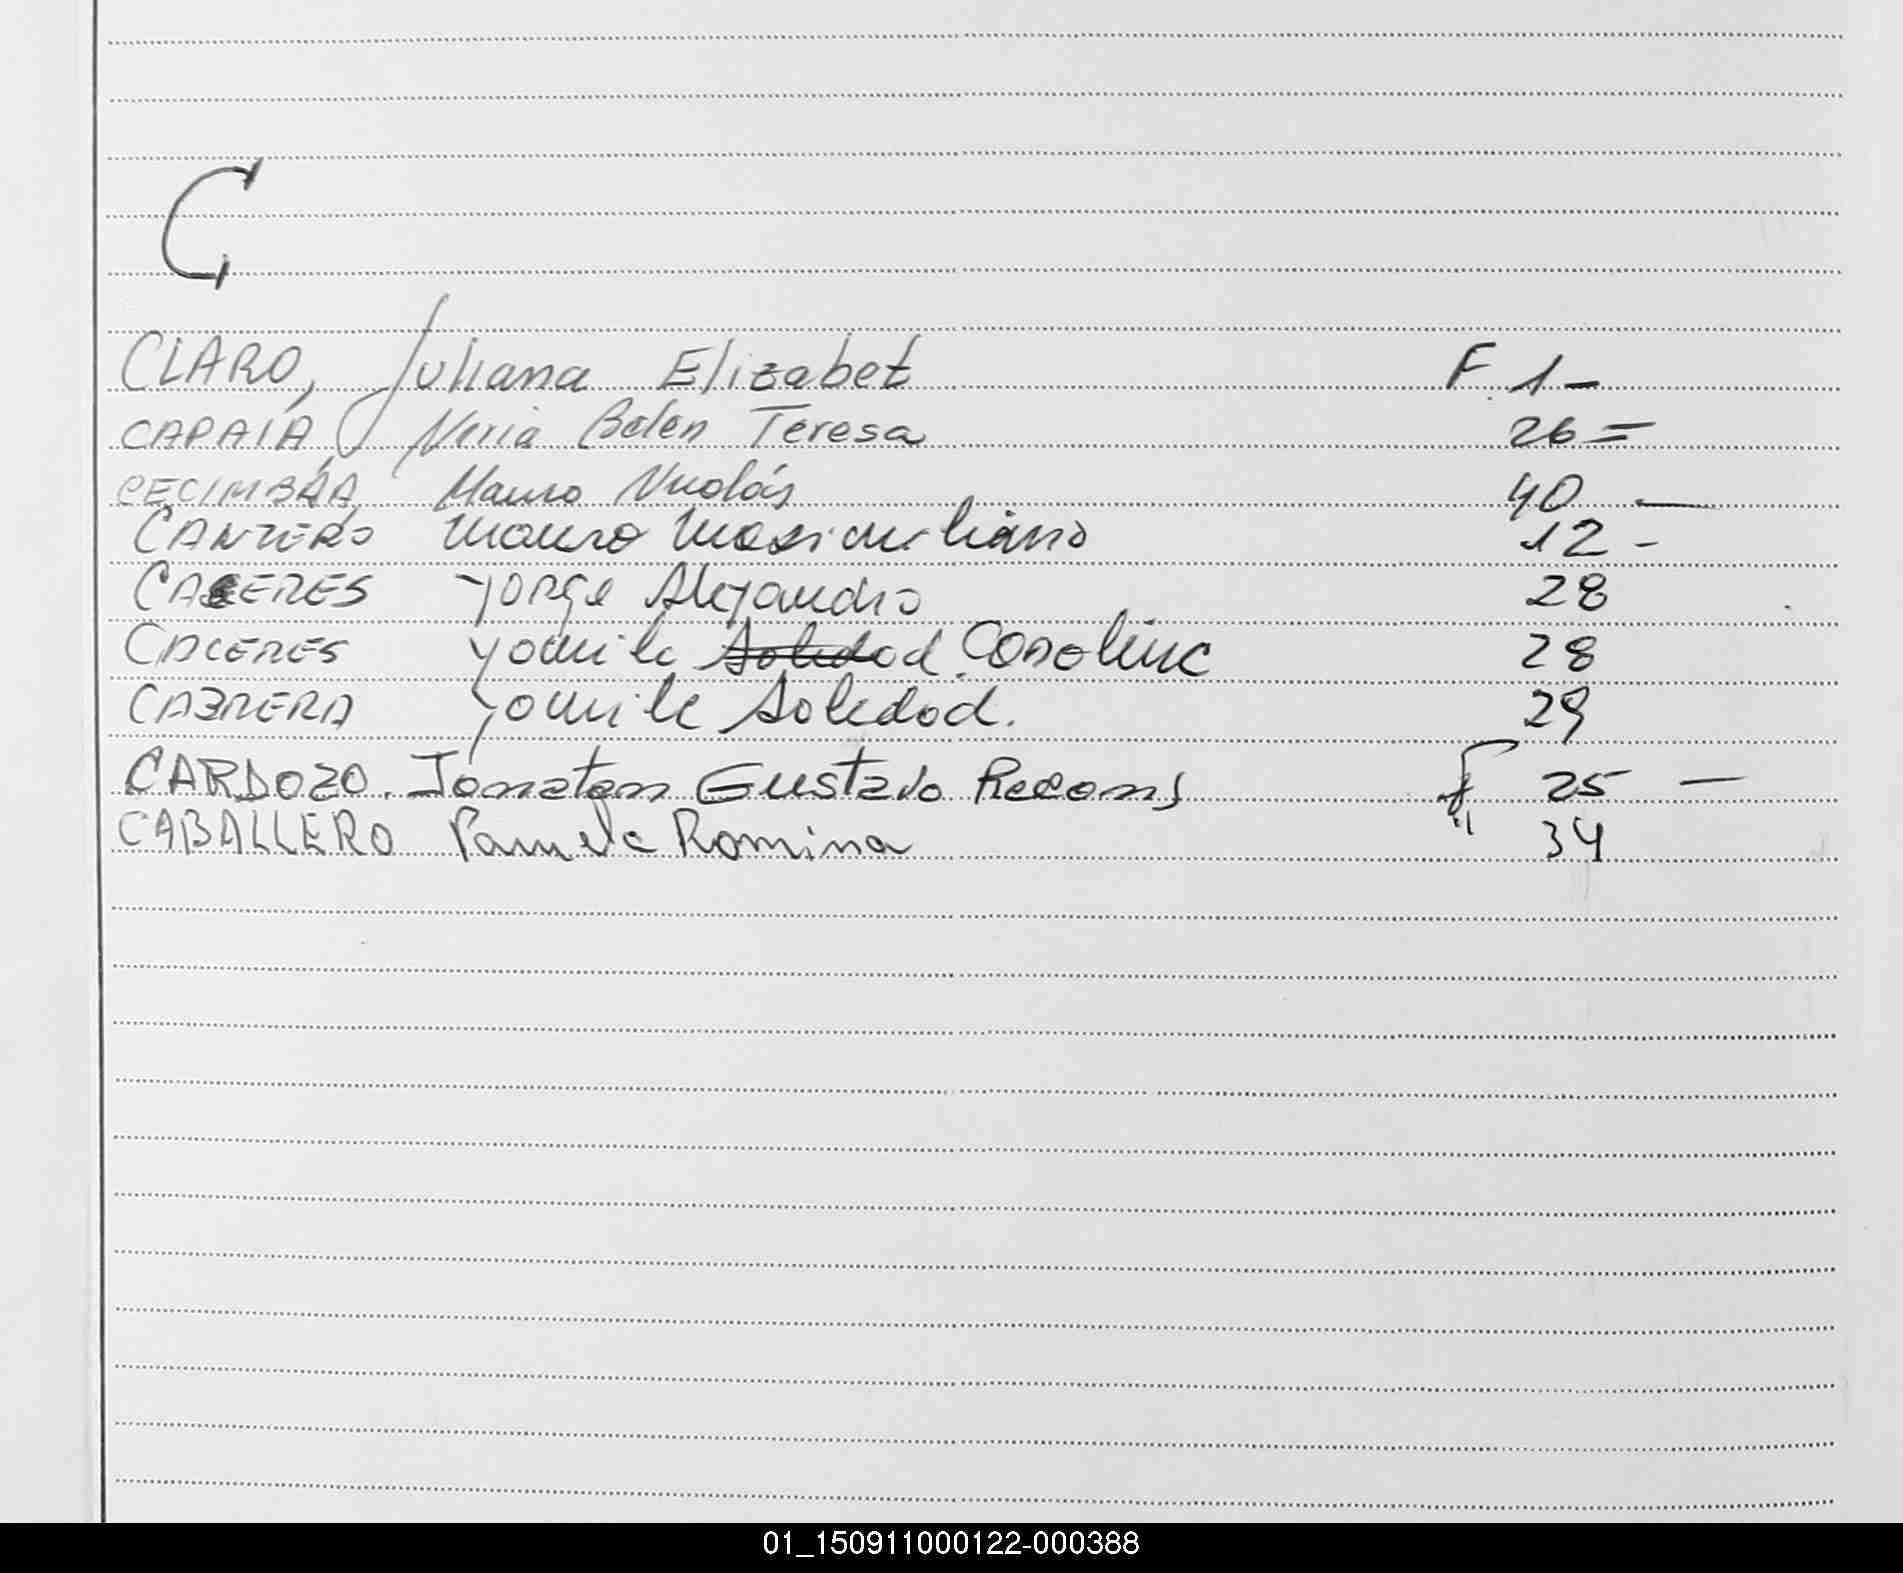 C
CLARO, Juliana Elizabet F. 1 -
CAPAIA, Neria Belen Teresa 26 =
CECIMBRA, Mauro Nicolás 40 —
CANTERO Mauro Maximiliano 12 -
CACERES Jorge Alejandro 28
CACERES Yamila Soledad Carolina 28
CABRERA Yamila Soledad. 29
CARDOZO. Jonatan Gustavo f 25 —
CABALLERO Pamela Romina " 34
01_150911000122-000388